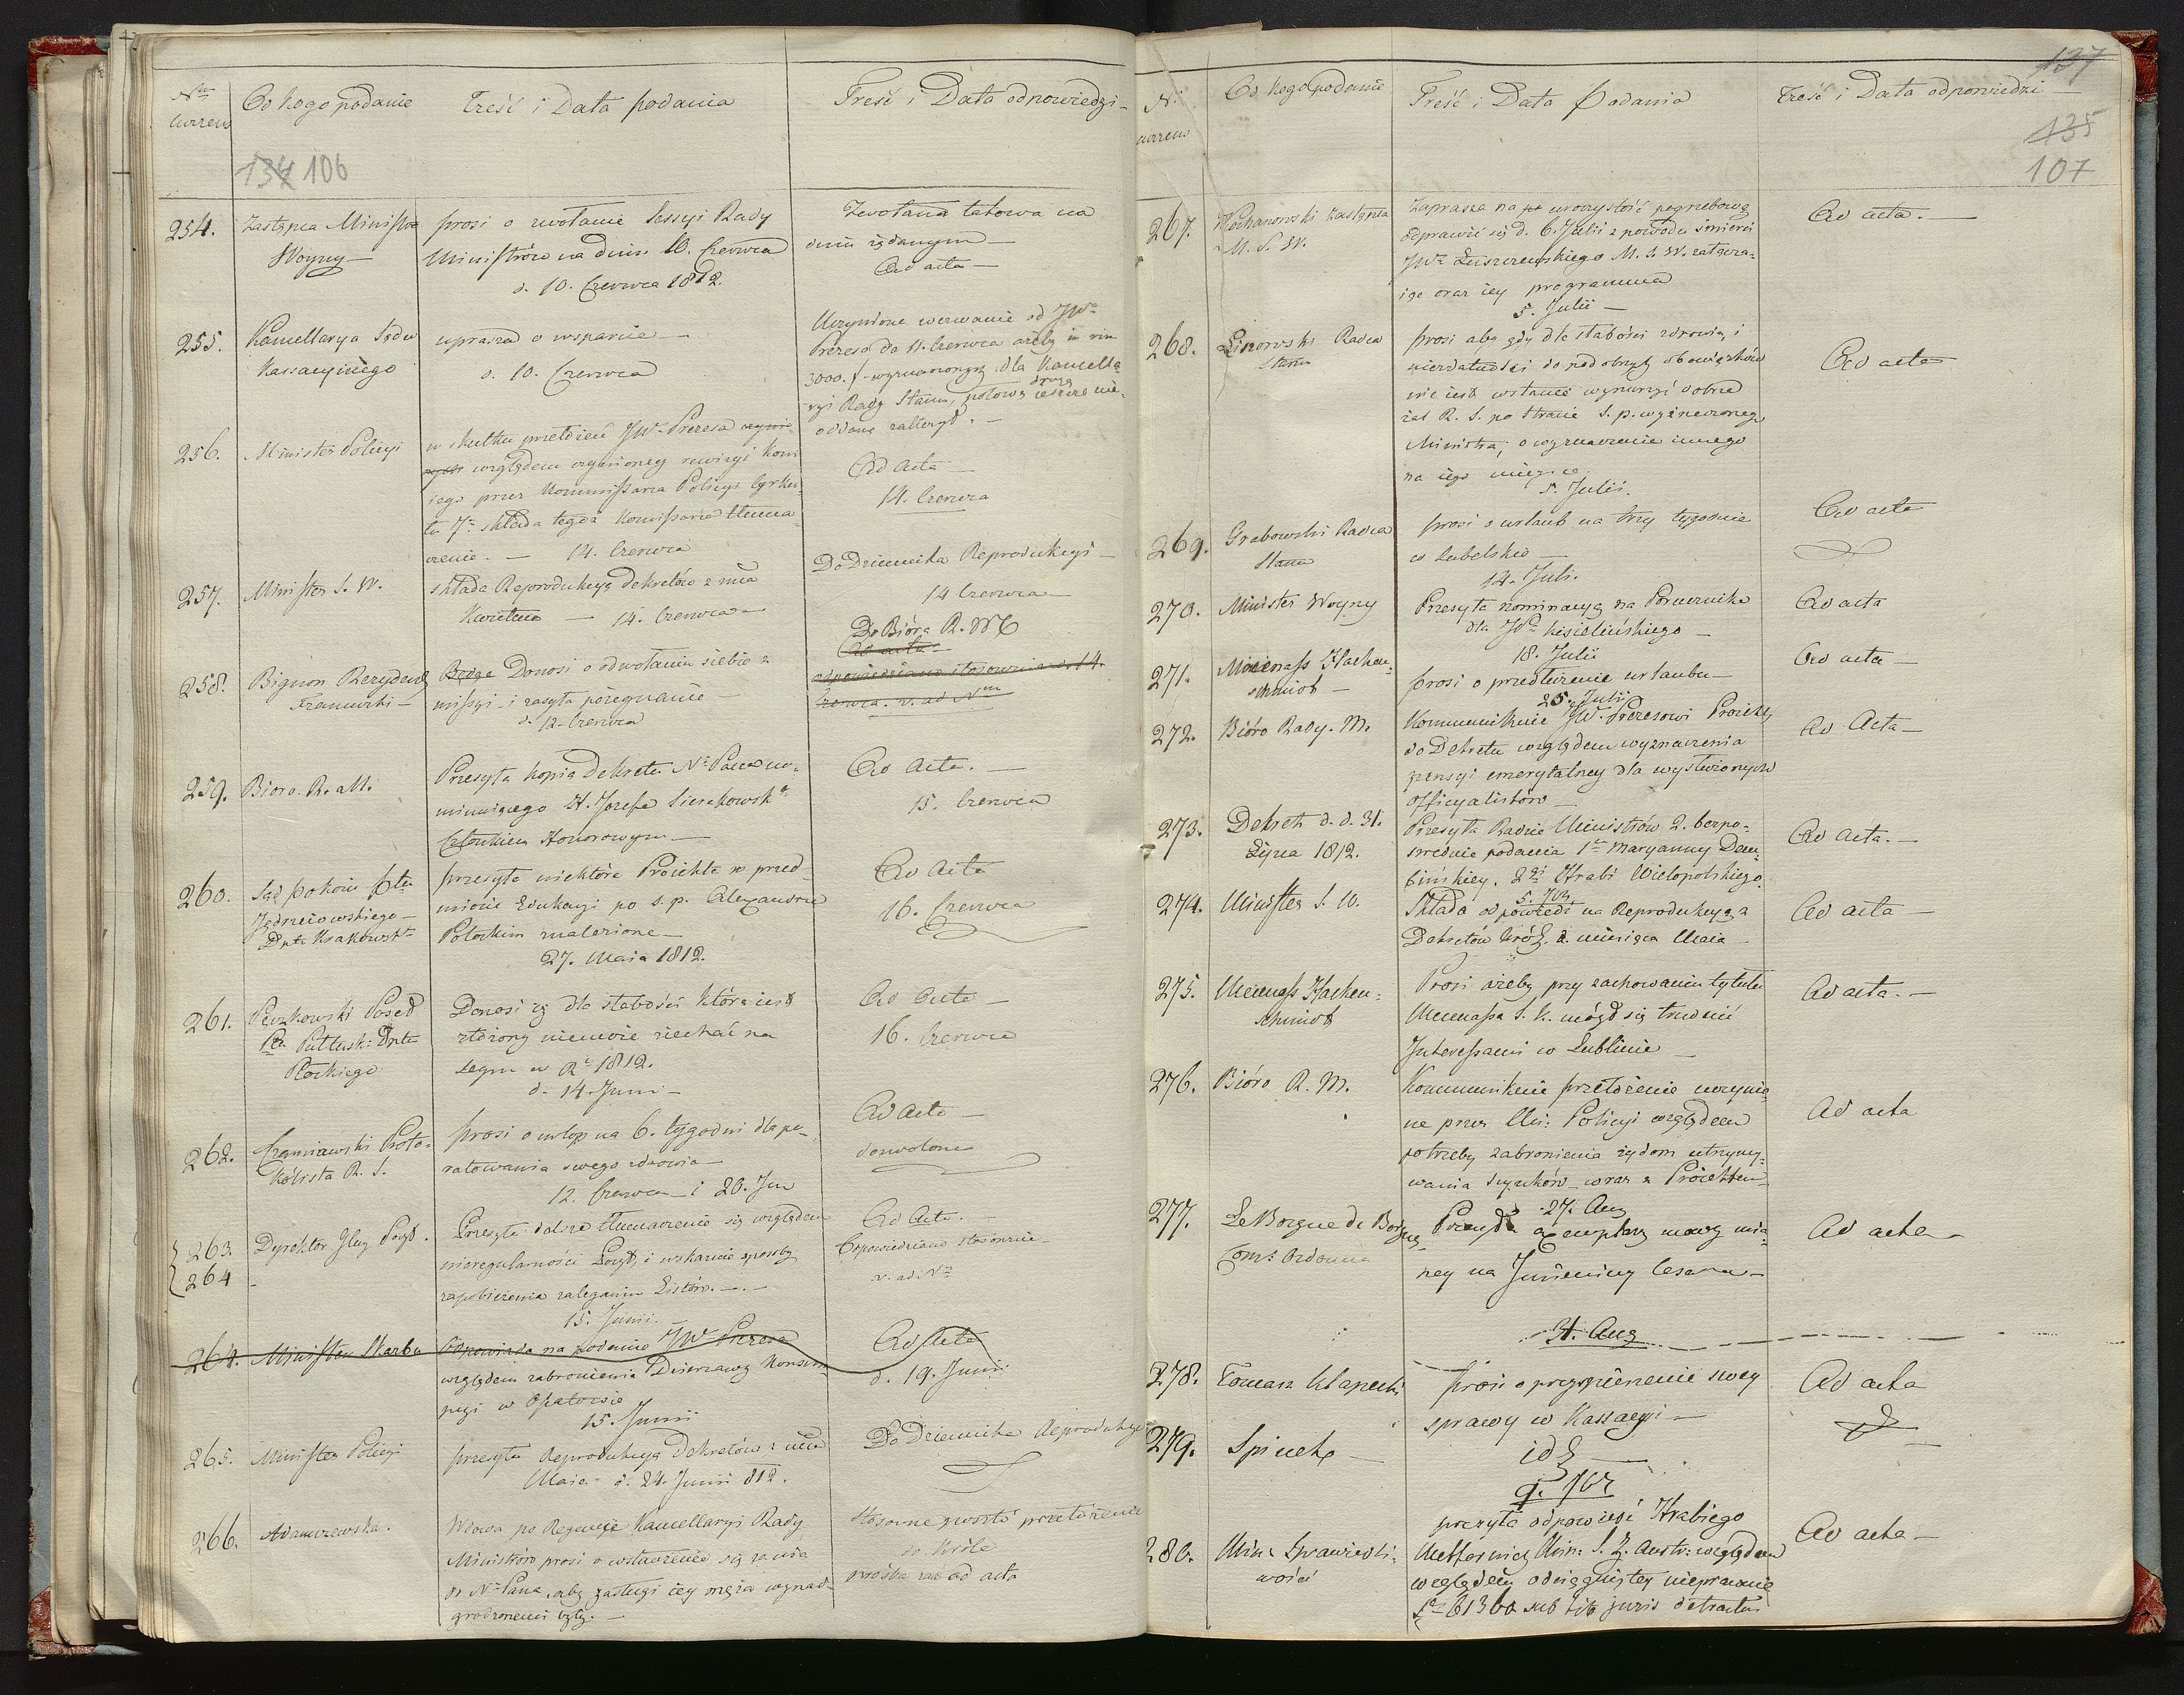 Nru currens
Od kogo podanie
Treść i Data podania
Treść i Data odpowiedzi
134 106
254.
Zastępca Ministra
Woyny
prosi o zwołanie Sessyi Rady
Ministrów na dniu 10. Czerwca
d. 10. Czerwca 1812.
Zwołana takowa na
dniu żądanym
Ad acta
255.
Kancellarya Sądu
Kassacyinego
uprasza o wsparcie
d. 10. Czerwca
Uczynione wezwanie od JWo
Prezesa do 11. Czerwca ażeby in vim
3000. f. wyznaczonych dla Kancella-
ryi Rady Stanu, połowę drugą ieszcze nie-
oddaną
256.
Minister Policyi
w skutku przełożeń JWo Prezesa
względem uczynioney rewizyi
iego przez Kommissarza Policyi Cyrku-
łu 7o składa tegoż Komissarza tłuma-
czenie. 14. Czerwca
Ad Acta
14. Czerwca
257.
Minister S. W.
składa Reprodukcyę Dekretów z mca
Kwietnia 14. Czerwca
Do Dziennika Reprodukcyi
14 Czerwca
258.
Bignon Rezydent
Francuzki
Donosi o odwołaniu siebie z
missyi i zasyła pożegnanie
d. 12. Czerwca
Do Bióra R. M
Ad acta
odpowiedziano stosownie d. 14.
Czerwca. v. ad Num
259.
Bióro. R. M.
Przesyła kopią Dekretu No Pana no-
minuiącego H. Jozefa Sierakowskgo
Członkiem Honorowym
Ad Acta.
15. Czerwca
260.
Sąd Pokoiu Ptu
Jędrzeiowskiego
Dptu Krakowsko
przesyła niektóre Proiekta w przed-
miocie Edukacyi po s. p. Alexandrze
Potockim znalezione
27. Maia 1812.
Ad Acta
16. Czerwca
261.
Poseł
Po Pułtusk: Dptu
Płockiego
Donosi iż dla słabości którą iest
złożony niemoże ziechać na
Seym w Ru 1812.
d. 14. Juni
Ad Acta
16. Czerwca
262.
Czarniawski Proto-
kólista R. S.
prosi o urlop na 6. tygodni dla po-
ratowania swego zdrowia
12. Czerwca i 20. Jun
Ad Acta
dozwolone
263.
264
Dyrektor Glny Poczt.
Przesyła dalsze tłumaczenie się względem
nieregularności Poczt, i wskazuie sposoby
zapobieżenia zaleganiu Listów.
15. Junii.
Ad Acta.
Odpowiedziano stosownie
v. ad. No
264.
Minister Skarbu
Odpowiada na podanie JW Prezesa
względem zabronienia Dzierżawcy Konsum-
pcyi w Opatowie
15. Junii
Ad Acta
d. 19. Junii
265.
Minister Policyi
przesyła Reprodukcyą Dekretów z mca
Maia d. 24. Junii 812.
Do Dziennika Reprodukcyi
266.
Adamczewska.
Wdowa po Regencie Kancellaryi Rady
Ministrów prosi o wstawienie się za nią
do No Pana, aby zasługi iey męża wynad-
grodzonemi były.
Stosowne przełożenie
do Króla
prośba zaś ad acta
137
135
107
Nr currens
Od kogo podanie
Treść i Data Podania
Treść i Data odpowiedzi
267.
Kochanowski Zastępca
M. S. W.
Zaprasza na uroczystość pogrzebową
odprawić się d. 6. Julii z powodu śmierci
JWo Łuszczewskiego M. S. W. załącza-
iąc oraz iey programma
5. Julii
Ad acta.
268.
Linowski Radca
Stanu
prosi aby gdy dla słabości zdrowia, i
niezdatności do podobnych obowiązków
nie iest wstanie wynurzyć dobrze
żal R. S. po stracie S. p. wyżrzeczonego
Ministra, o wyznaczenie innego
na iego mieysce.
5. Julii.
Ad acta
269.
Grabowski Radca
Stanu
prosi o urlaub na trzy tygodnie
w Lubelskie
14. Juli.
Ad acta
270.
Minister Woyny
Przesyła nominacyą na Porucznika
dla JPa Kisielińskiego
18. Julii
Ad acta
271.
Mecenass Hacken-
schmidt
prosi o przedłużenie urlaubu
25. Julii
Ad acta
272.
Bióro Rady. M.
Kommunikuie JW. Prezesowi Proiekt
do Dekretu względem wyznaczenia
pensyi emerytalney dla wysłużonych
officyalistów
Ad Acta
273.
Dekret d. d. 31.
Lipca 1812.
Przesyła Radzie Ministrów 2. bezpo-
srednie podania 1sze Maryanny Dem-
bińskiey. 2gi Hrabi Wielopolskiego.
5. 
Ad Acta.
274.
Minister S. W.
Składa odpowiedź na Reprodukcyą z
Dekretów Król. z miesiąca Maia
Ad acta
275.
Mecenass Hacken-
schmidt
Prosi ażeby przy zachowaniu tytułu
Mecenassa S. K. mógł się trudnić
Interessami w Lublinie
Ad acta.
276.
Bióro R. M.
Kommunikuie przełożenie uczynio-
ne przez Min: Policyi względem
potrzeby zabronienia żydom utrzymy-
wania Szynków wraz z Proiektem
27. Aug
Ad acta
277.
Le Borgne de Borgne
Coms Ordonna
Przesyła exemplarz mowy mia-
ney na Imieniny Cesarza
31. Aug
Ad acta
278.
Tomasz
prosi o przyspieszenie swey
sprawy w Kassacyi
Ad acta
279.
Spinek
id
9. 7br
280.
Min: Sprawiedli-
wości
przesyła odpowiedź Hrabiego
Metternich Min: S. Z. Austr: względem
względem odciągniętey nieprawnie
61360 sub tit juris detractus
Ad acta